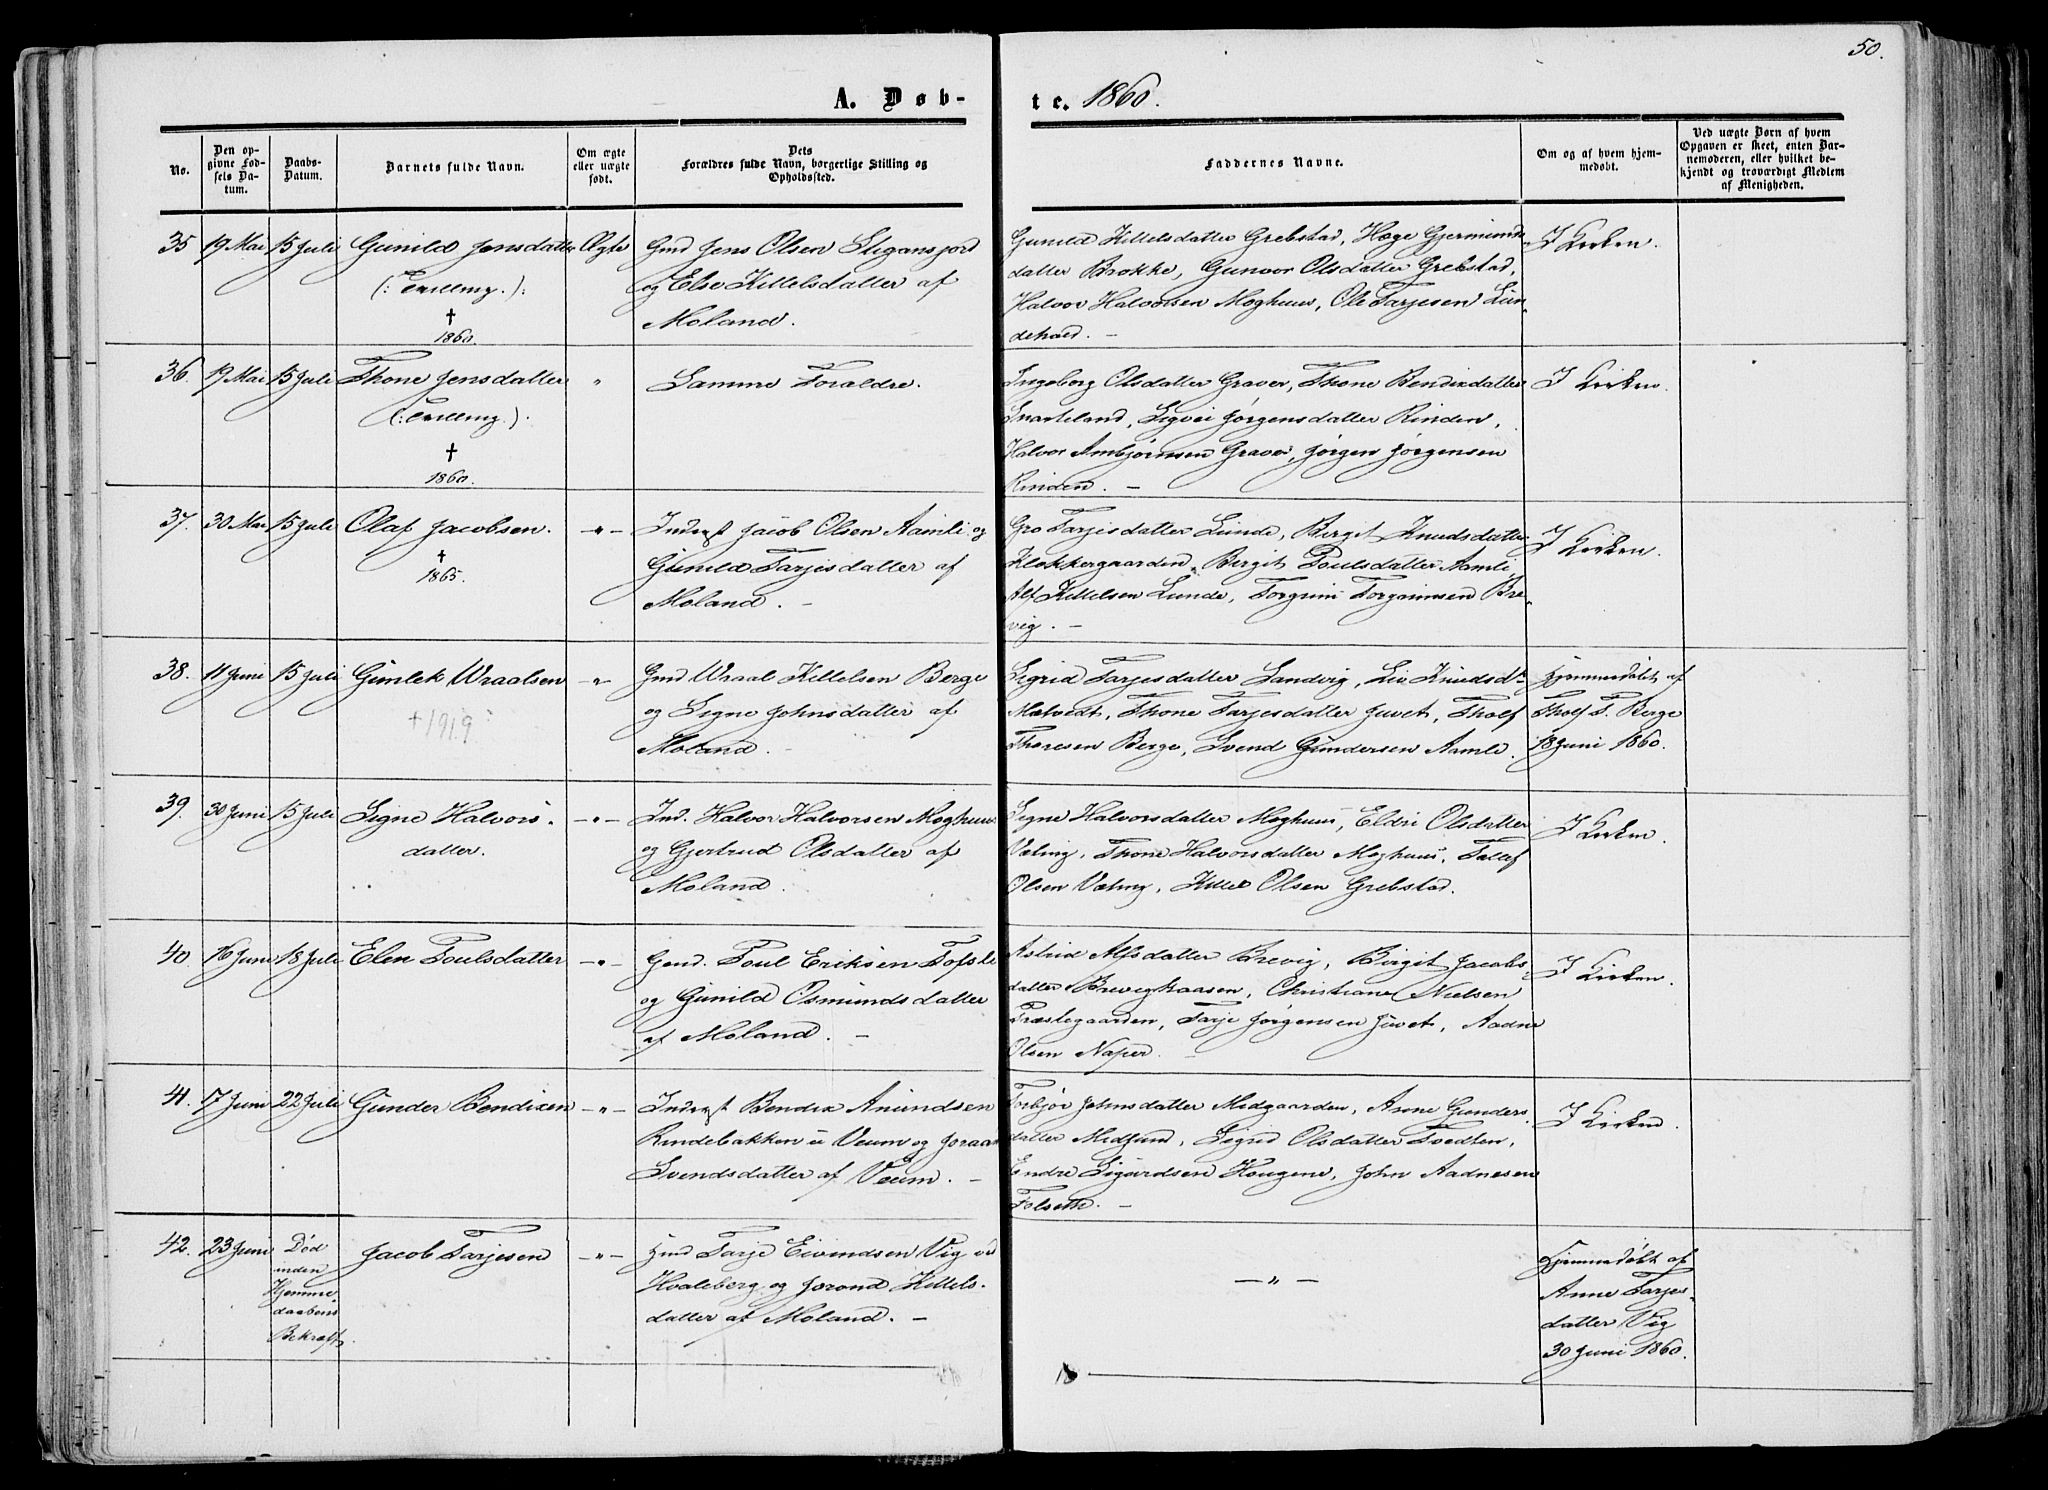 50.
A. Døb-
te. 1860.
No.
Den op-
givne Fød-
sels Da-
tum.
Daabs-
Datum.
Barnets fulde Navn.
Om ægte
eller uægte
født.
Dets
Forældres fulde Navn, borgerlige Stilling og
Opholdssted.
Faddernes Navne.
Om og af hvem hjem-
medøbt.
Ved uægte Børn af hvem
Opgaven er skeet, enten Bar-
nemoderen, eller hvilket be-
kjendt og troværdigt Medlem
af Menigheden.
35 19 Mai 15 Juli Gunild Jensdatter Ægte
(: Tvilling. ):
†
1860.
Gmd Jens Olsen Stigansjord
og Else Kittelsdatter af
Moland.
Gunild Kittelsdatter Grebstad, Hæge Gjermunds-
datter Brokke, Gunvor Olsdatter Grebstad,
Halvor Halvorsen Moghuus, Ole Tarjesen Lun-
dehoid. –
I Kirken.
36. 19 Mai 15 Juli Thone Jensdatter "
(: Tvilling. ).
†
1860.
Samme Forældre.
Ingeborg Olsdatter Graver, Thone Bendixdatter
Snarteland, Sigvei Jørgensdatter Rinden,
Halvor Ambjørnsen Graver, Jørgen Jørgensen
Rinden. –
I Kirken.
37. 30 Mai 15 Juli Olaf Jacobsen. –"–
†
1865.
Inderst Jacob Olsen Aamli og
Gunild Tarjesdatter af
Moland. –
Gro Tarjesdatter Lunde, Bergit Knudsdatter
Klokkergaarden, Birgit Poulsdatter Aamli
Alf Kittelsen Lunde, Torgrim Torgrimsen Bre-
vig. –
I Kirken.
38. 11 Juni 15 Juli Gunlek Wraalsen –"
+ 1919
Gmd Wraal Kittelsen Berge
og Signe Johnsdatter af
Moland. –
Sigrid Tarjesdatter Sandvig, Liv Knudsdr
Mølvedt, Thone Tarjesdatter Juvet, Tholf
Thoresen Berge, Svend Gundersen Aamli.
Hjemmedøbt af
Tholf T. Berge
18 Juni 1860.
39. 30 Juni 15 Juli Signe Halvors- –"–
datter.
Ind. Halvor Halvorsen Moghuus
og Gjertrud Olsdatter af
Moland.
Signe Halvorsdatter Moghuus, Eldri Olsdatter
Væting, Thone Halvorsdatter Moghuus, Tallef
Olsen Væting, Kittel Olsen Grebstad.
I Kirken.
40. 16 Juni 18 Juli Elen Poulsdatter –"–
Gmd. Poul Eriksen Tofsle
og Gunild Osmundsdatter
af Moland. –
Astrid Alfsdatter Brevig, Birgit Jacobs-
datter Brevighaasen, Christiane Nielsen
Præstegaarden, Tarje Jørgensen Juvet, Aadne
Olsen Naper. –
I Kirken.
41. 17 Juni 22 Juli Gunder Bendixen –"–
Inderst Bendix Anundsen
Rindebakken u Veum og Joraan
Svendsdatter af Veum. –
Torbjør Johnsdatter Midgaarden, Anne Gunders-
datter Midjund, Sigrid Olsdatter Tvedten,
Endre Sigurdsen Hougene, John Aadnesen
Folseth. –
I Kirken.
42. 23 Juni Død
inden
Hjemme-
daabens
Bekræft.
Jacob Tarjesen –"–
Hmd Tarje Eivindsen Vig ved
Hvaleberg og Jorond Kittels-
datter af Moland. –
–"–
Hjemmedøbt af
Anne Tarjes-
datter Vig
30 Juni 1860.